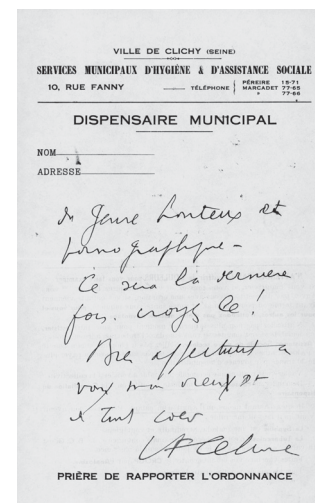 VILLE DE CLICHY (SEINE)
SERVICES MUNICIPAUX D'HYGIÈNE & D'ASSISTANCE SOCIALE
10, RUE FANNY
TÉLÉPHONE
PÉREIRE 15-71
MARCADET 77-65
» 77-66
DISPENSAIRE MUNICIPAL
NOM
ADRESSE
du genre honteux et
pornographique -
Ce sera la dernière
fois. croyez le !
Bien affectueut à
vous mon vieux et
de tout coeur
LF Celine
PRIÈRE DE RAPPORTER L'ORDONNANCE